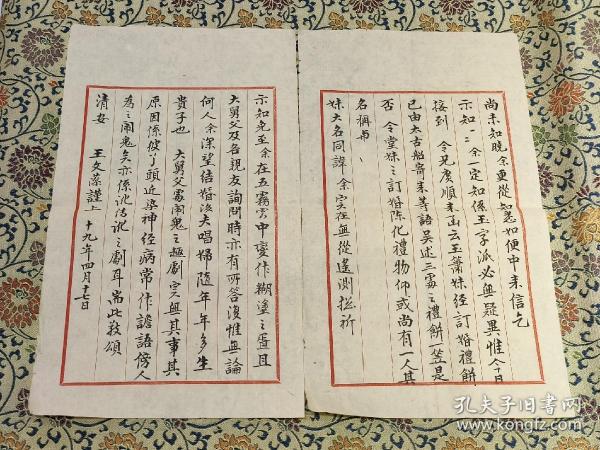 尚未知曉余更從知悉如便中来信乞
示知…余一定知係玉字派必無疑異惟今日
接到 令兄广順来函云玉簫妹經訂婚禮餅
已由太古船寄来等語吳述三處之禮餅豈是
否 令堂妹之訂婚陈化禮物仰或尚有一人其
名稱与
妹大名同諱 余实在無從遙測抵祈
示知免至余在五霧雲中變作糊塗之蛋且
大舅父及各親友詢問時亦有所答復惟無論
何人余深望结婚後夫唱婦隨年年多生
貴子也 大舅父處鬧鬼之趣劇实無其事其
原因係使了頭近染神经病常作譫語傍人
為之鬧鬼矣亦係
之劇耳 耑此敬頌
清安 王文藻謹上 十九年四月十七日
孔夫子旧书网